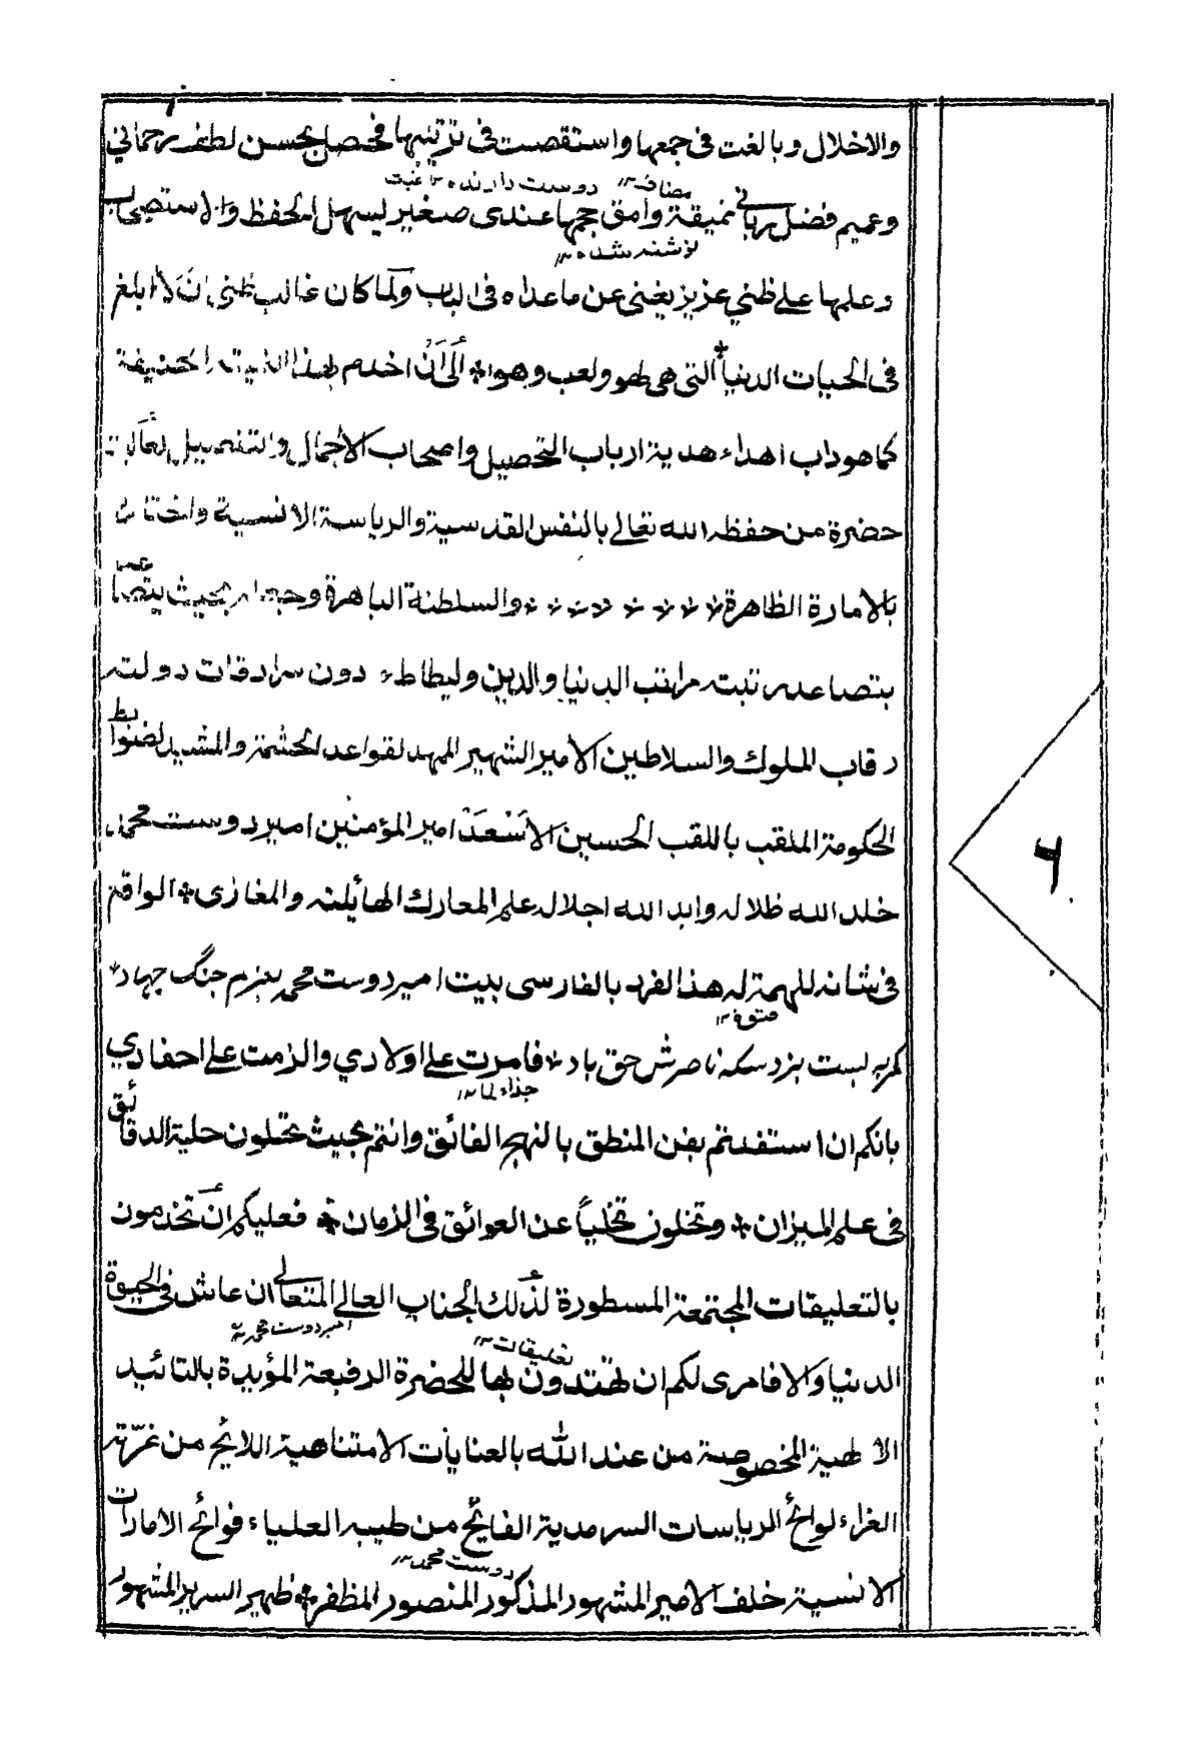 والاخلال وبالغت فى جمعها واستقصت فى ترتيبها فحصل بحسن لطف رحمانى
مضاف١٢ دوست دارنده١٢
وعميم فضل ربانى نميقة وامق حجمها عندى صغير ليسهل الحفظ والاستصحاب
نوشته شده١٢
وعلمها على ظني عزيز يغنى عن ماعداه فى الباب ولما كان غالب ظنى ان لا ابلغ
فى الحيات الدنيا التى هى لهو ولعب وهواء الى ان اخدم بهذا
كما هو داب اهداء هدية ارباب التحصيل واصحاب الاجمال والتفصيل
حضرة من حفظه الله تعالى بالنفس القدسية والرياسة الانسية
بالامارة الظاهرة والسلطنة الباهرة وجعله بحيث
بتصاعد رتبته مراتب الدنيا والدين وليطاطء دون سرادقات دولته
رقاب الملوك والسلاطين الامير الشهير الممهد لقواعد الحشمة والمشيد لضوابط
الحكومة الملقب باللقب الحسين الاسعد امير المؤمنين امير دوست محمد
خلد الله ظلاله وابد الله اجلاله علم المعارك الهائلة والمغازى * الواقع
فى شانه للهمة له هذا الفرد بالفارسى بيت امير دوست محمد بعزم جنگ جهاد
كمر به بست بزد سكه ناصرش حق باد * فامرت على اولادي والزمت على احفادي
جزاء لما١٢
بانكم ان استفدتم بفن المنطق بالنهج الفائق وانتم بحيث تحلون حلية الدقائق
فى علم الميزان * وتخلون تخلياً عن العوائق فى الزمان * فعليكم ان تخدمون
بالتعليقات المجتمعة المسطورة لذلك الجناب العالى المتعالى ان عاش فى الحيوة
تعليقات١٢ امير دوست محمد
الدنيا والا فامرى لكم ان تهتدون بها للحضرة الرفيعة المؤيدة بالتائيد
الالهية المخصوصة من عند الله بالعنايات الامتناهية اللايح من غرّته
الغراء لوائح الرياسات السرمدية الفايح من طيبه العلياء فوائح الامارات
دوست محمد١٢
الانسية خلف الامير المشهور المذكور المنصور المظفر * ظهير السرير المشهور
٦